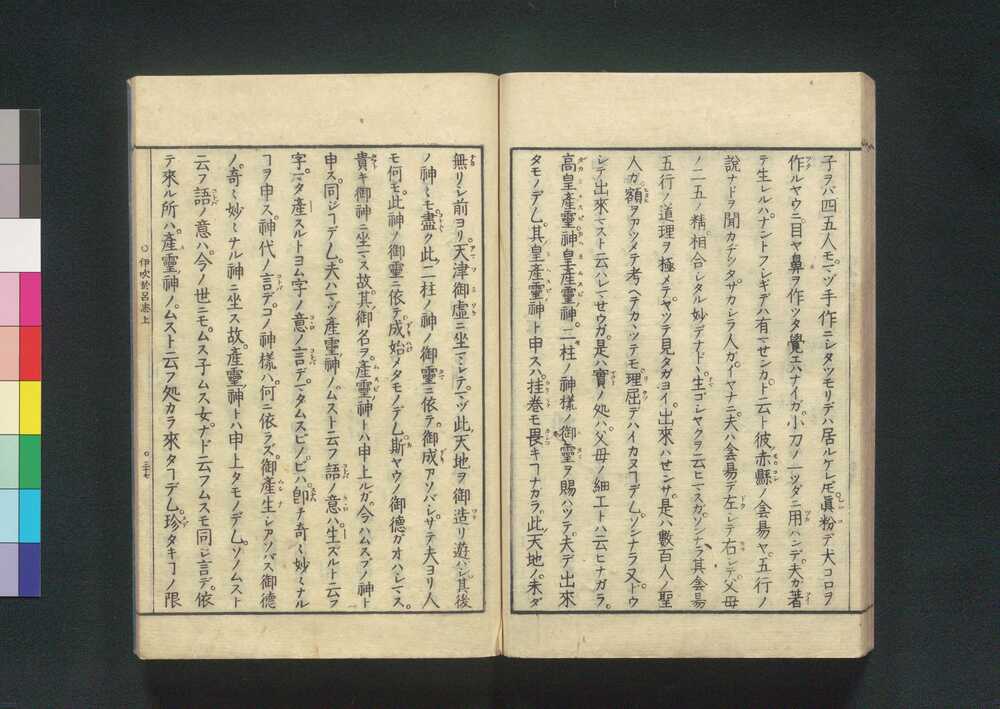 子ヲバ四五人モマヅ手作ニシタツモリデハ居ルケレ𪜈眞粉デ犬コロヲ
作ルヤウニ目ヤ鼻ヲ作ツタ覺エハナイガ小刀ノ一ツダニ用ハンデ夫カ著
テ生レルハナントフシギデハ有マセンカト云ト彼赤縣ノ侌昜ヤ五行ノ
說ナドヲ聞カヂツタサカシラ人ガイヤナニ夫ハ侌昜デ左シテ右シテ父母
ノ二五ノ精相合シタル妙デナドト生ゴシヤクヲ云ヒマスガソンナラ其侌昜
五行ノ道理ヲ極メテヤツテ見タガヨイ出來ハセンサ是ハ數百人ノ聖
人ガ額ヲアツメテ考ヘテカヽツテモ理屈デハイカヌコデムソンナラ又ドウ
シテ出來マスト云ハレマセウガ是ハ實ノ処ハ父母ノ細工トハ云ヒナガラ
高皇產靈神皇產靈神二柱ノ神樣ノ御靈ヲ賜ハツテ夫デ出來
タモノデム其皇產靈神ト申スハ挂卷モ畏キコナガラ此天地ノ未ダ
無リシ前ヨリ天津御虛ニ坐マシテマヅ此天地ヲ御造リ遊バシ其後
ノ神マモ盡ク此二柱ノ神ノ御靈ニ依テ御成アソバシサテ夫ヨリ人
モ何モ此神ノ御靈ニ依テ成始メタモノデム斯ヤウノ御德ガオハシマス
貴キ御神ニ坐マス故其御名ヲ產靈神トハ申上ルガ今ハムスブノ神ト
申ス同ジコデム夫ハマヅ產靈神ノムスト云フ語ノ意ハ生ズルト云フ
字マタ產スルトヨム字ノ意ノ言デマタムスビノビハ卽チ奇ミ妙ミナル
コヲ申ス神代ノ言デコノ神樣ハ何ニ依ラズ御產生シアソバス御德
ノ奇ミ妙ミナル神ニ坐ス故產靈神トハ申上タモノデムソノムスト
云フ語ノ意ハ今ノ世ニモムス子ムス女ナド云フムスモ同ジ言デ依
テ來ル所ハ產靈神ノムスト云フ処カラ來タコデム珍タキコノ限
伊吹於呂志上